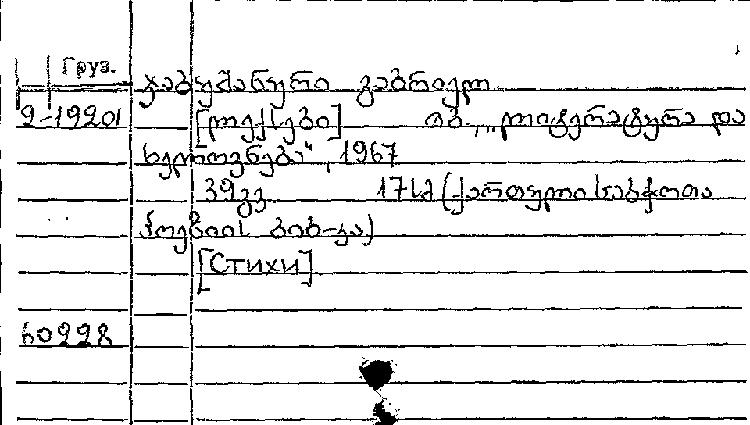 Груз.
ჯაბუშანური გაბრიელ
2-19201 [ლექსები] თბ., „ლიტერატურა და
ხელოვნება“, 1967
39გვ. 17სმ (ქართული საბჭოთა
პოეზიის ბიბ-კა)
[Стихи]